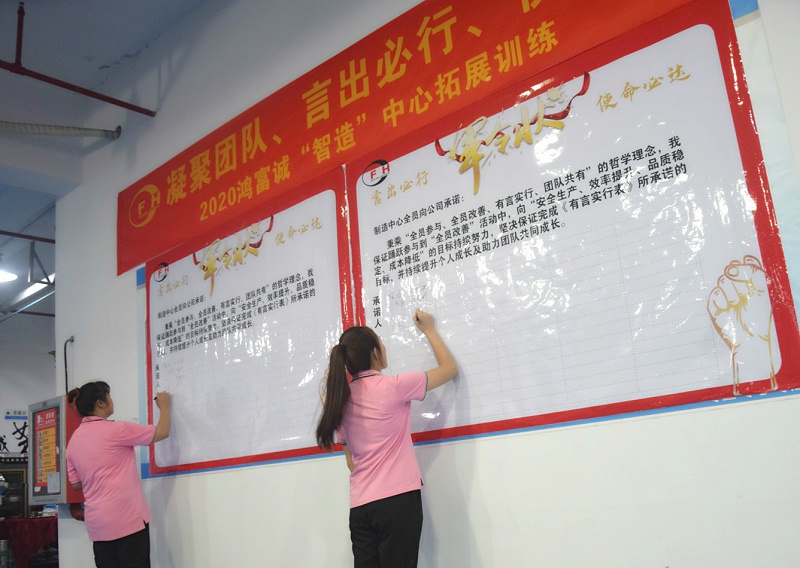 凝聚团队、言出必行、
2020鸿富诚“智造”中心拓展训练
FH
FH
言出必行
军令状
使命必达
制造中心全员向公司承诺：
秉乘“全员参与、全员改善、有言实行、团队共有”的哲学理念，我
保证踊跃参与到“全员改善”活动中，向“安全生产、效率提升、品质稳
定、成本降低”的目标持续努力，坚决保证完成《有言实行表》所承诺的
目标，并持续提升个人成长及助力团队共同成长。
承诺人
FH
言出必行
军令状
使命必达
制造中心全员向公司承诺：
秉乘“全员参与、全员改善、有言实行、团队共有”的哲学理念，我
保证踊跃参与到“全员改善”活动中，向“安全生产、效率提升、品质稳
定、成本降低”的目标持续努力，坚决保证完成《有言实行表》所承诺的
目标，并持续提升个人成长及助力团队共同成长。
承诺人